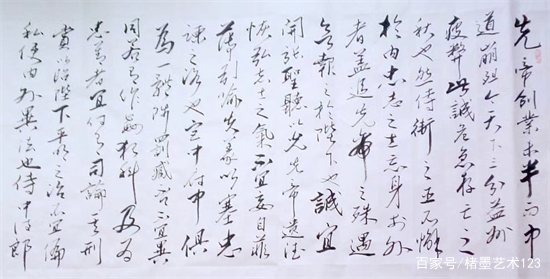 先帝創業未半而中
道崩殂今天下三分益州
疲弊此誠危急存亡之
秋也然侍衛之臣不懈
於內忠志之士忘身於外
者蓋追先帝之殊遇
欲報之於陛下也誠宜
開張聖聽以光先帝遺德
恢弘志士之氣不宜妄自菲
薄引喻失義以塞忠
諫之路也宮中府中俱
為一體陟罰臧否不宜異
同若有作姦犯科及為
忠善者宜付有司論其刑
賞以昭陛下平明之治不宜偏
私使內外異法也侍中侍郎
百家号/楮墨艺术123